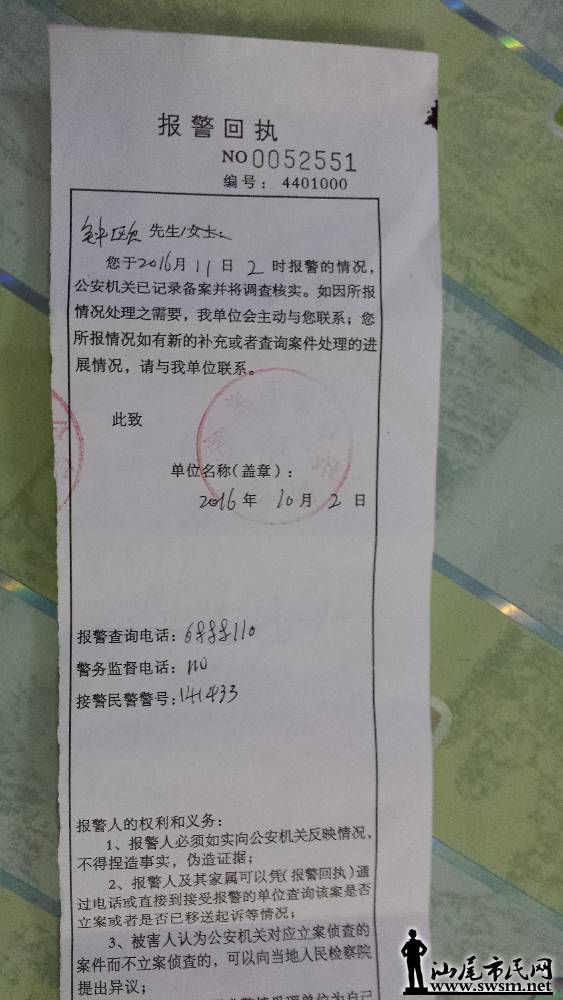 报警回执
NO 0052551
编号：4401000
先生/女士：
您于2016月11日2时报警的情况，
公安机关已记录备案并将调查核实。如因所报
情况处理之需要，我单位会主动与您联系；您
所报情况如有新的补充或者查询案件处理的进
展情况，请与我单位联系。
此致
单位名称（盖章）：
2016年10月2日
报警查询电话：6888110
警务监督电话：110
接警民警警号：141433
报警人的权利和义务：
1、报警人必须如实向公安机关反映情况，
不得捏造事实，伪造证据；
2、报警人及其家属可以凭（报警回执）通
过电话或直接到接受报警的单位查询该案是否
立案或者是否已移送起诉等情况；
3、被害人认为公安机关对应立案侦查的
案件而不立案侦查的，可以向当地人民检察院
提出异议；
汕尾市民网
www.swsm.net